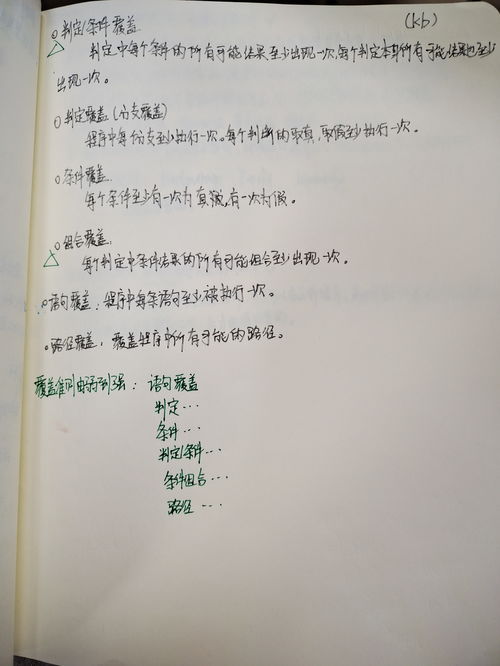 (kb)
○判定/条件覆盖
△ 判定中每个条件的所有可能结果至少出现一次,每个判定本身所有可能结果也至少
出现一次。
○判定覆盖(分支覆盖)
程序中每个分支至少执行一次。每个判断的取真,取假至少执行一次。
○条件覆盖.
每个条件至少有一次为真,有一次为假。
○组合覆盖.
△ 每个判定中条件结果的所有可能组合至少出现一次。
○语句覆盖,程序中每条语句至少被执行一次。
○路径覆盖,覆盖程序中所有可能的路径。
覆盖准则由弱到强:语句覆盖
判定…
条件…
判定/条件…
条件组合…
路径…